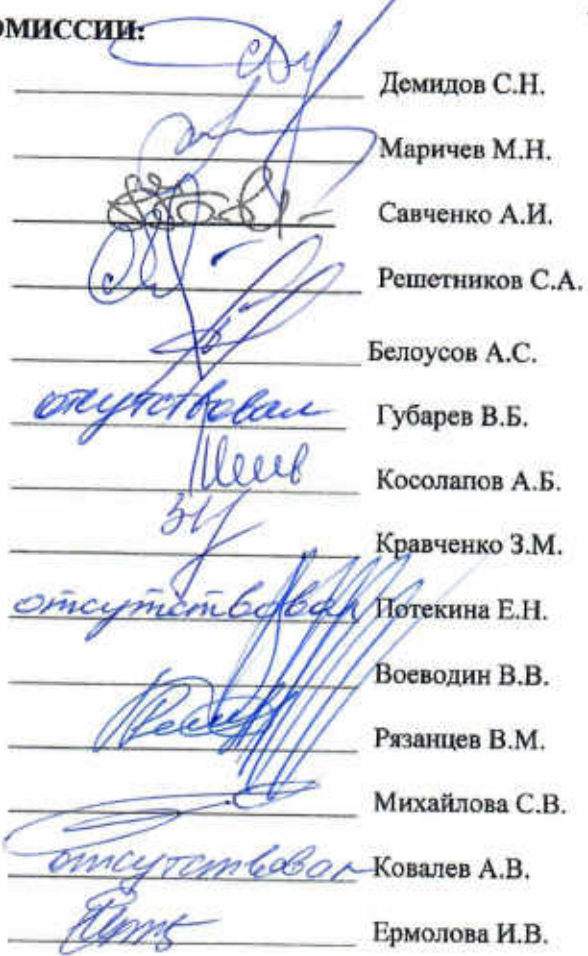 ОМИССИИ:
Демидов С.Н.
Маричев М.Н.
Савченко А.И.
Решетников С.А.
Белоусов А.С.
отсутствовал Губарев В.Б.
Косолапов А.Б.
Кравченко З.М.
отсутствовал Потекина Е.Н.
Воеводин В.В.
Рязанцев В.М.
Михайлова С.В.
отсутствовал Ковалев А.В.
Ермолова И.В.